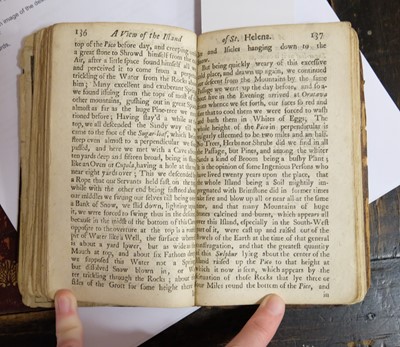 136 A View of the Island
top of the Pico before day, and creeping under
a great stone to Shrowd himself from the
Air, after a little space found himself all wet,
and perceived it to come from a perpetual
trickling of the Water from the Rocks above
him; Many excellent and exuberant Springs
we found issuing from the tops of most of the
other mountains, gushing out in great Spouts
almost as far as the huge Pine-tree we men-
tioned before; Having stay'd a while upon the
top, we all descended the Sandy way till we
came to the foot of the Sugar-loaf, which being
steep even almost to a perpendicular we soon
passed, and here we met with a Cave about
ten yards deep and fifteen broad, being in shape
like an Oven or Cupola, having a hole at the top
near eight yards over; This we descended by
a Rope that our Servants held fast, on the top
while with the other end being fastned about
our middles we swung our selves till being over
a Bank of Snow, we slid down, lighting upon
it, we were forced to swing thus in the descent,
because in the midst of the bottom of this Cave,
opposite to the overture at the top is a round
pit of Water like a Well, the surface whereof
is about a yard lower, but as wide as its
Mouth at top, and about six Fathom deep;
we supposed this Water not a Spring,
but dissolved Snow blown in, or Water
trickling through the Rocks; about the
sides of the Grott for some height there
of St. Helena. 137
and Isicles hanging down to the
Snow.
But being quickly weary of this excessive
cold place, and drawn up again, we continued
our descent from the Mountains by the same
Passage we went up the day before, and so a-
bout five in the Evening arrived at Oratava
from whence we set forth, our faces so red and
sore that to cool them we were forced to wash
and bath them in Whites of Eggs; The
whole height of the Pico in perpendicular is
vulgarly esteemed to be two miles and an half.
No Trees, Herbs nor Shrubs did we find in all
the Passage, but Pines, and among the whiter
Sands a kind of Broom being a bushy Plant;
It is the opinion of some Ingenious Persons who
have lived twenty years upon the place, that
the whole Island being a Soil mightily im-
pregnated with Brimstone did in former times
take fire and blow up all or near all at the same
time, and that many Mountains of huge
Stones calcined and burnt, which appears all
over this Island, especially in the South-West
part of it, were cast up and raised out of the
Bowels of the Earth at the time of that general
conflagration, and that the greatest quantity
of this Sulphur lying about the center of the
Island raised up the Pico to that height at
which it now is seen, which appears by the
situation of those Rocks that lye three or
four Miles round the bottom of the Pico, and
in